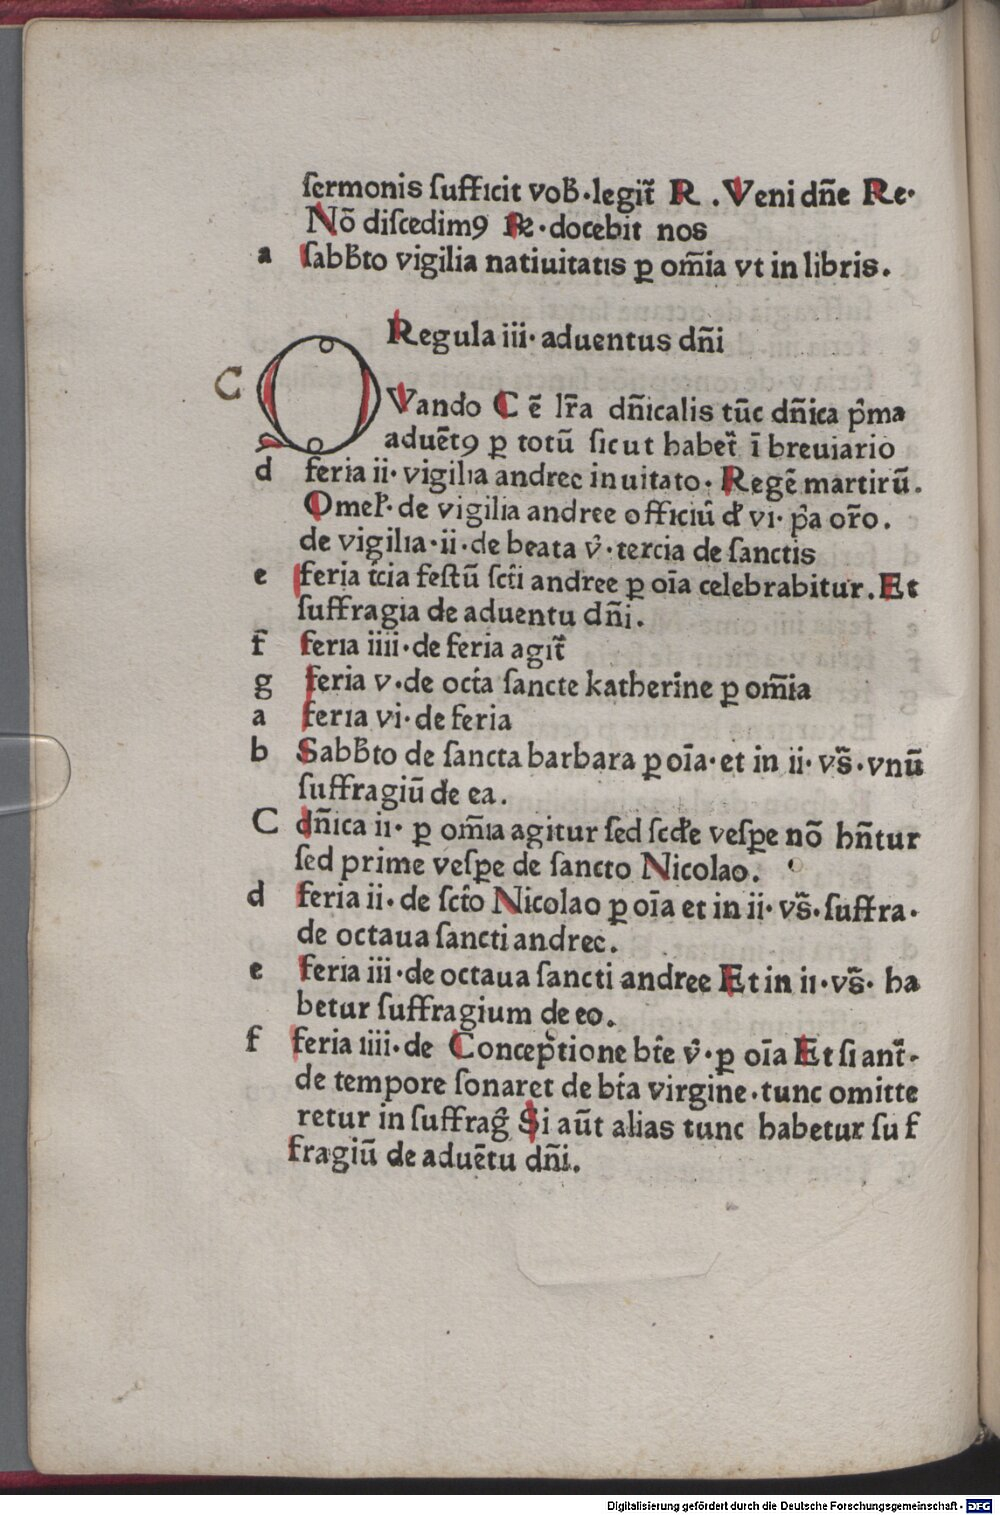 ſermonis ſufficit vob̃·legit̃ R .Veni dñe Re·
Nõ diſcedimꝯ Re·docebit nos
a ſabb̃to vigilia natiuitatis ꝑ om̃ia vt in libris.
Regula iii· aduentus dñi
C
QVando C ē lr̃a dñicalis tūc dñica p̃ma
aduētꝯ ꝑ totū ſicut habet̃ ī breuiario
d feria ii· vigilia andree inuitato· Regē martirū.
Omel̃· de vigilia andree officiū d̃ vi· p̃a or̃o.
de vigilia·ii·de beata v̑·tercia de ſanctis
e feria t̃cia feſtū ſcti andree ꝑ oīa celebrabitur.Et
ſuffragia de aduentu dñi.
f feria iiii·de feria agit̃
g feria v·de octa ſancte katherine ꝑ om̃ia
a feria vi·de feria
b Sabb̃to de ſancta barbara ꝑ oīa·et in ii· vs̃·vnū
ſuffragiū de ea.
C dñica ii· ꝑ om̃ia agitur ſed ſcd̃e veſꝑe nõ hñtur
ſed prime veſꝑe de ſancto Nicolao.
d feria ii· de ſcto Nicolao ꝑ oīa et in ii· vs̃·ſuffra·
de octaua ſancti andree.
e feria iii·de octaua ſancti andree Et in ii·vs̃· ha
betur ſuffragium de eo.
f feria iiii·de Conceptione bt̃e v̑·ꝑ oīa Et ſi ant̃·
de tempore ſonaret de bt̃a virgine·tunc omitte
retur in ſuffrag̃ Si aūt alias tunc habetur ſuf
fragiū de aduētu dñi.
Digitalisierung gefördert durch die Deutsche Forschungsgemeinschaft - DFG